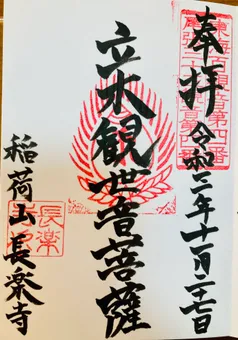 奉拝
令和二年十一月二十七日
立木観世音菩薩
稲荷山長楽寺